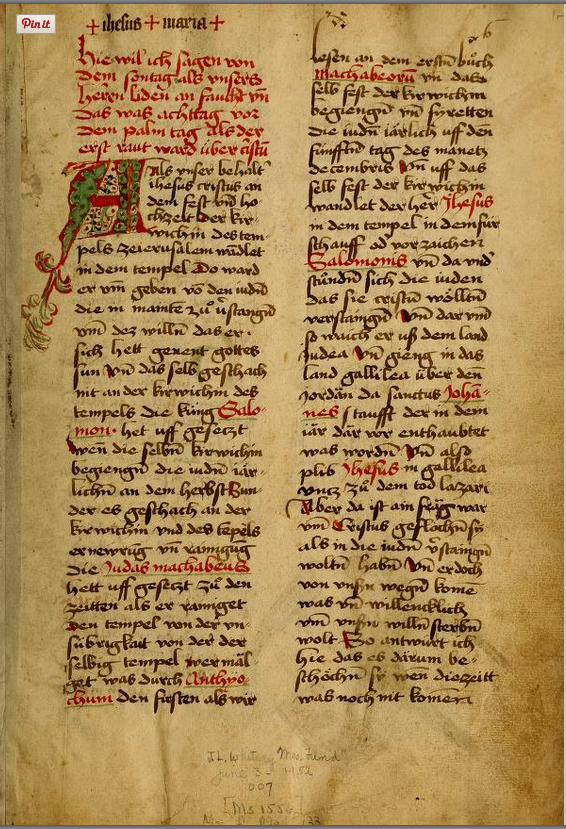 Pin it
+ ihesus + maria +
Hie wil ich sagen von
Dem sontag als unsers
herrn liden an facht vn̄
Das was achttag vor
Dem palm tag als der
erst rant ward über cristū
Als vnser behalt
ihesus cristus an
dem fest vnd ho
chzelt der kir
wichin des tem
pels zeierusalem wādlet
in dem tempel Do ward
er vm̄ geben vō den iudn̄
die in mainte zu̎ v̄staingn̄
vm̄ dez willn̄ das er
sich hett genent gottes
sun Vn̄ das selb geschach
nit an der kirwichin des
tempels die kung Salo
mon het uff gesetzt
wen die selbn̄ kirwichin
begiengn̄ die iudn̄ iär
lichn̄ an dem herbst Sun
der es geschach an der
kirwichin vnd des tēpels
ernewrūg vn̄ rainigūg
die Judas machabeus
hett uff gesetzt zu̎ den
zeitten als er rainiget
den tempel von der vn
sübrigkait von der der
selbig tempel vermäl
get was durch Anthyo
chum den fürsten als wir
6
lesen an dem erstn̄ bůch
Machabeorū vn̄ das
selb fest der kirwichin
begiengn̄ vn̄ fyretten
die iudn̄ iärlich uff den
fünfftn̄ tag des manetz
decembris Vn̄ uff das
selb fest der kirwichin
wandlet der her Jhesus
in dem tempel in dem für
schauff od vorzaichen
Salomonis vn̄ da vnd
stůndn̄ sich die iuden
das sie cristū wölltn̄
verstaingn̄ Vn̄ dar vm̄
so waich er uß dem land
Judea Vn̄ gieng in das
land gallilea über den
Jordän da sanctus Joha
nes taufft der in dem
iär där vor enthaubtet
was wordn̄ Vn̄ also
plib Jhesus in gallilea
vncz zu̎ dem tod lazari
Aber da ist ain fräg war
vm̄ Cristus geflochn̄ sy
als in die iudn̄ v̄staingn̄
woltn̄ habn̄ Vn̄ er doch
von vnsn̄ wegn̄ kome
was vn̄ willencklich
vm̄ vnsn̄ willn̄ sterbn̄
wolt So antwurt ich
hie das es därum be
schöchn̄ sy wen die zeitt
was noch nit komen
J.L. Whitney Mss. Fund
June 3 - 1952
007
[MS 1550